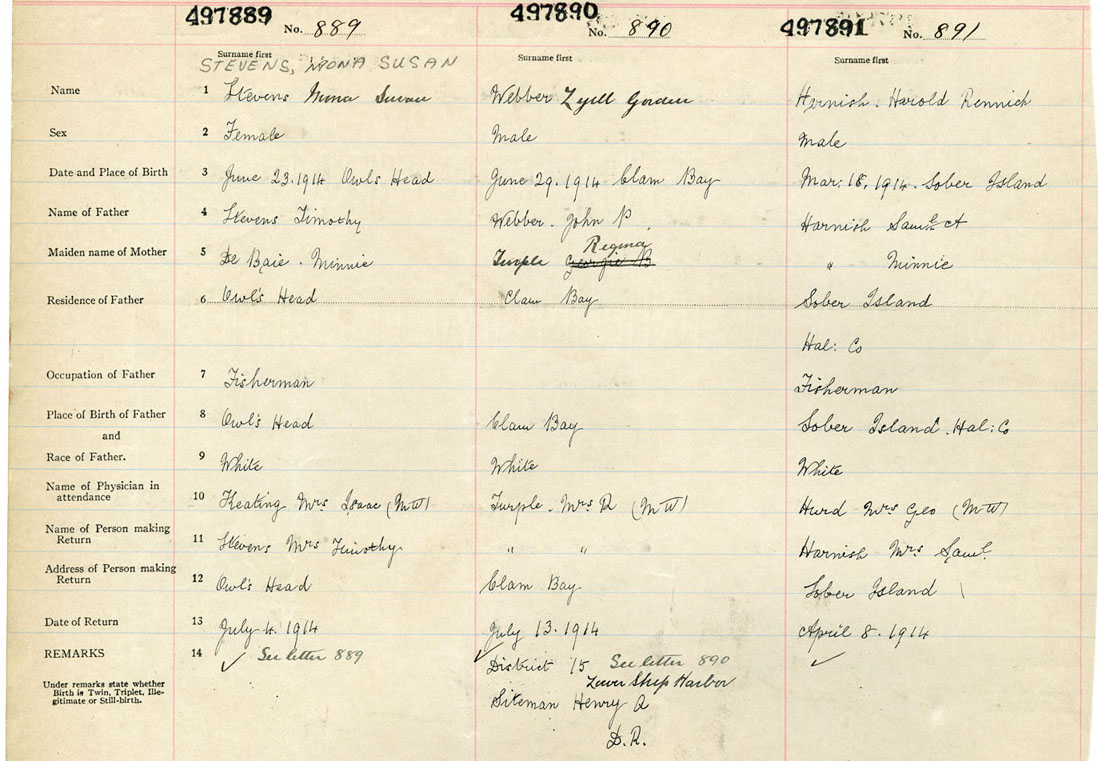 497889 No. 889 497890 No. 890 497891 No. 891
Surname first Surname first Surname first
STEVENS, MONA SUSAN
Name 1 Stevens Mona Susan Webber Zyell Gorden Harnish. Harold Rennich
Sex 2 Female Male Male
Date and Place of Birth 3 June 23. 1914 Owls Head June 29. 1914 Clam Bay Mar. 18, 1914. Sober Island
Name of Father 4 Stevens Timothy Webber. John P. Harnish Saml. A
Regina
Maiden name of Mother 5 De Baie. Minnie Turple Georgie B " Minnie
Residence of Father 6 Owl's Head Clam Bay Sober Island
Hal: Co
Occupation of Father 7 Fisherman Fisherman
Place of Birth of Father 8 Owl's Head Clam Bay Sober Island. Hal: Co
and
Race of Father. 9 White White White
Name of Physician in
attendance 10 Keating Mrs Isaac (MW) Turple. Mrs R (MW) Hurd Mrs Geo (MW)
Name of Person making
Return 11 Stevens Mrs Timothy " " Harnish Mrs Saml.
Address of Person making
Return 12 Owl's Head Clam Bay Sober Island
Date of Return 13 July 4. 1914 July 13. 1914 April 8. 1914
REMARKS 14 ✓ See letter 889 ✓ District 15 See letter 890 ✓
Lower Ship Harbor
Under remarks state whether
Birth is Twin, Triplet, Ille-
gitimate or Still-birth.
Siteman Henry A
D.R.